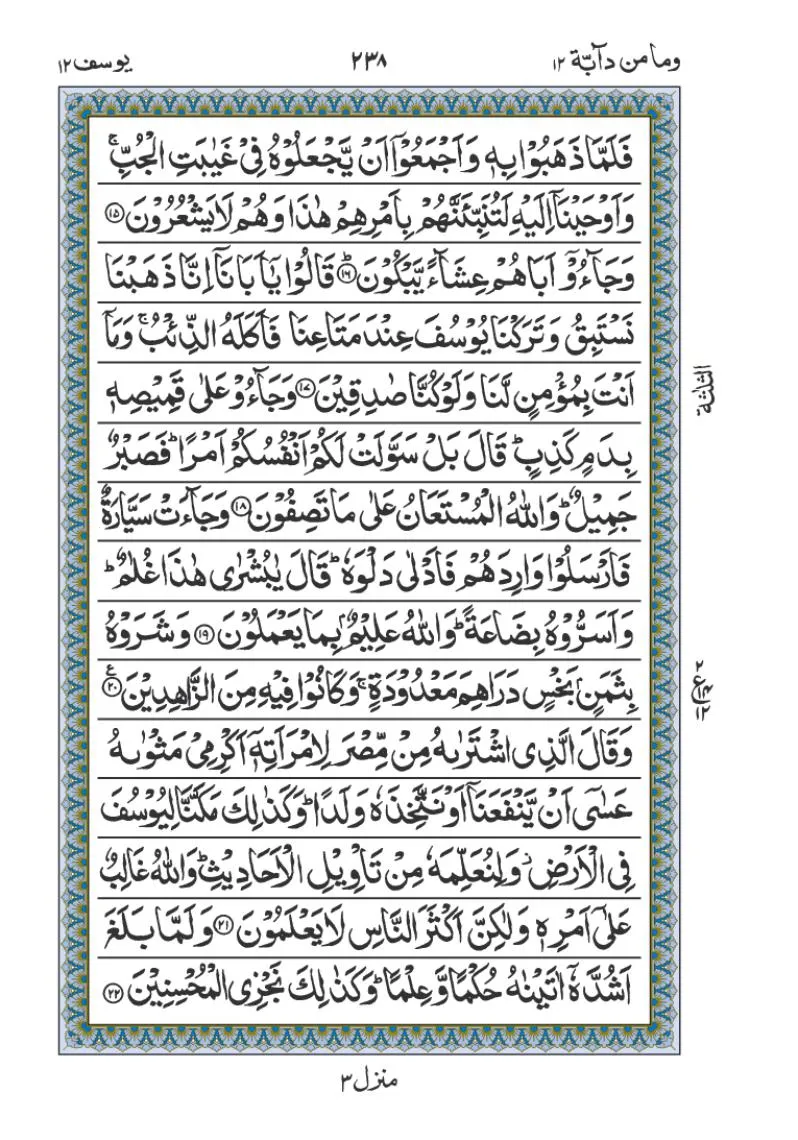 وما من دآبّة ١٢
٢٣٨
يوسف ١٢
فَلَمَّا ذَهَبُوْا بِهٖ وَاَجْمَعُوْۤا اَنْ يَّجْعَلُوْهُ فِيْ غَيٰبَتِ الْجُبِّ ۚ
وَاَوْحَيْنَاۤ اِلَيْهِ لَتُنَبِّئَنَّهُمْ بِاَمْرِهِمْ هٰذَا وَهُمْ لَا يَشْعُرُوْنَ ۝١٥
وَجَآءُوْۤ اَبَاهُمْ عِشَآءً يَّبْكُوْنَ ؕ۝١٦ قَالُوْا يٰۤاَبَانَاۤ اِنَّا ذَهَبْنَا
نَسْتَبِقُ وَتَرَكْنَا يُوْسُفَ عِنْدَ مَتَاعِنَا فَاَكَلَهُ الذِّئْبُ ۚ وَمَاۤ
اَنْتَ بِمُؤْمِنٍ لَّنَا وَلَوْ كُنَّا صٰدِقِيْنَ ۝١٧ وَجَآءُوْ عَلٰى قَمِيْصِهٖ
بِدَمٍ كَذِبٍ ؕ قَالَ بَلْ سَوَّلَتْ لَكُمْ اَنْفُسُكُمْ اَمْرًا ؕ فَصَبْرٌ
جَمِيْلٌ ؕ وَاللّٰهُ الْمُسْتَعَانُ عَلٰى مَا تَصِفُوْنَ ۝١٨ وَجَآءَتْ سَيَّارَةٌ
فَاَرْسَلُوْا وَارِدَهُمْ فَاَدْلٰى دَلْوَهٗ ؕ قَالَ يٰبُشْرٰى هٰذَا غُلٰمٌ ؕ
وَاَسَرُّوْهُ بِضَاعَةً ؕ وَاللّٰهُ عَلِيْمٌۢ بِمَا يَعْمَلُوْنَ ۝١٩ وَشَرَوْهُ
بِثَمَنٍۢ بَخْسٍ دَرَاهِمَ مَعْدُوْدَةٍ ۚ وَكَانُوْا فِيْهِ مِنَ الزَّاهِدِيْنَ ۝٢٠ ع
وَقَالَ الَّذِى اشْتَرٰىهُ مِنْ مِّصْرَ لِامْرَاَتِهٖۤ اَكْرِمِيْ مَثْوٰىهُ
عَسٰۤى اَنْ يَّنْفَعَنَاۤ اَوْ نَتَّخِذَهٗ وَلَدًا ؕ وَكَذٰلِكَ مَكَّنَّا لِيُوْسُفَ
فِى الْاَرْضِ ؗ وَلِنُعَلِّمَهٗ مِنْ تَاْوِيْلِ الْاَحَادِيْثِ ؕ وَاللّٰهُ غَالِبٌ
عَلٰۤى اَمْرِهٖ وَلٰكِنَّ اَكْثَرَ النَّاسِ لَا يَعْلَمُوْنَ ۝٢١ وَلَمَّا بَلَغَ
اَشُدَّهٗۤ اٰتَيْنٰهُ حُكْمًا وَّعِلْمًا ؕ وَكَذٰلِكَ نَجْزِى الْمُحْسِنِيْنَ ۝٢٢
الثلثة
٢
ع
١٢
منزل ٣